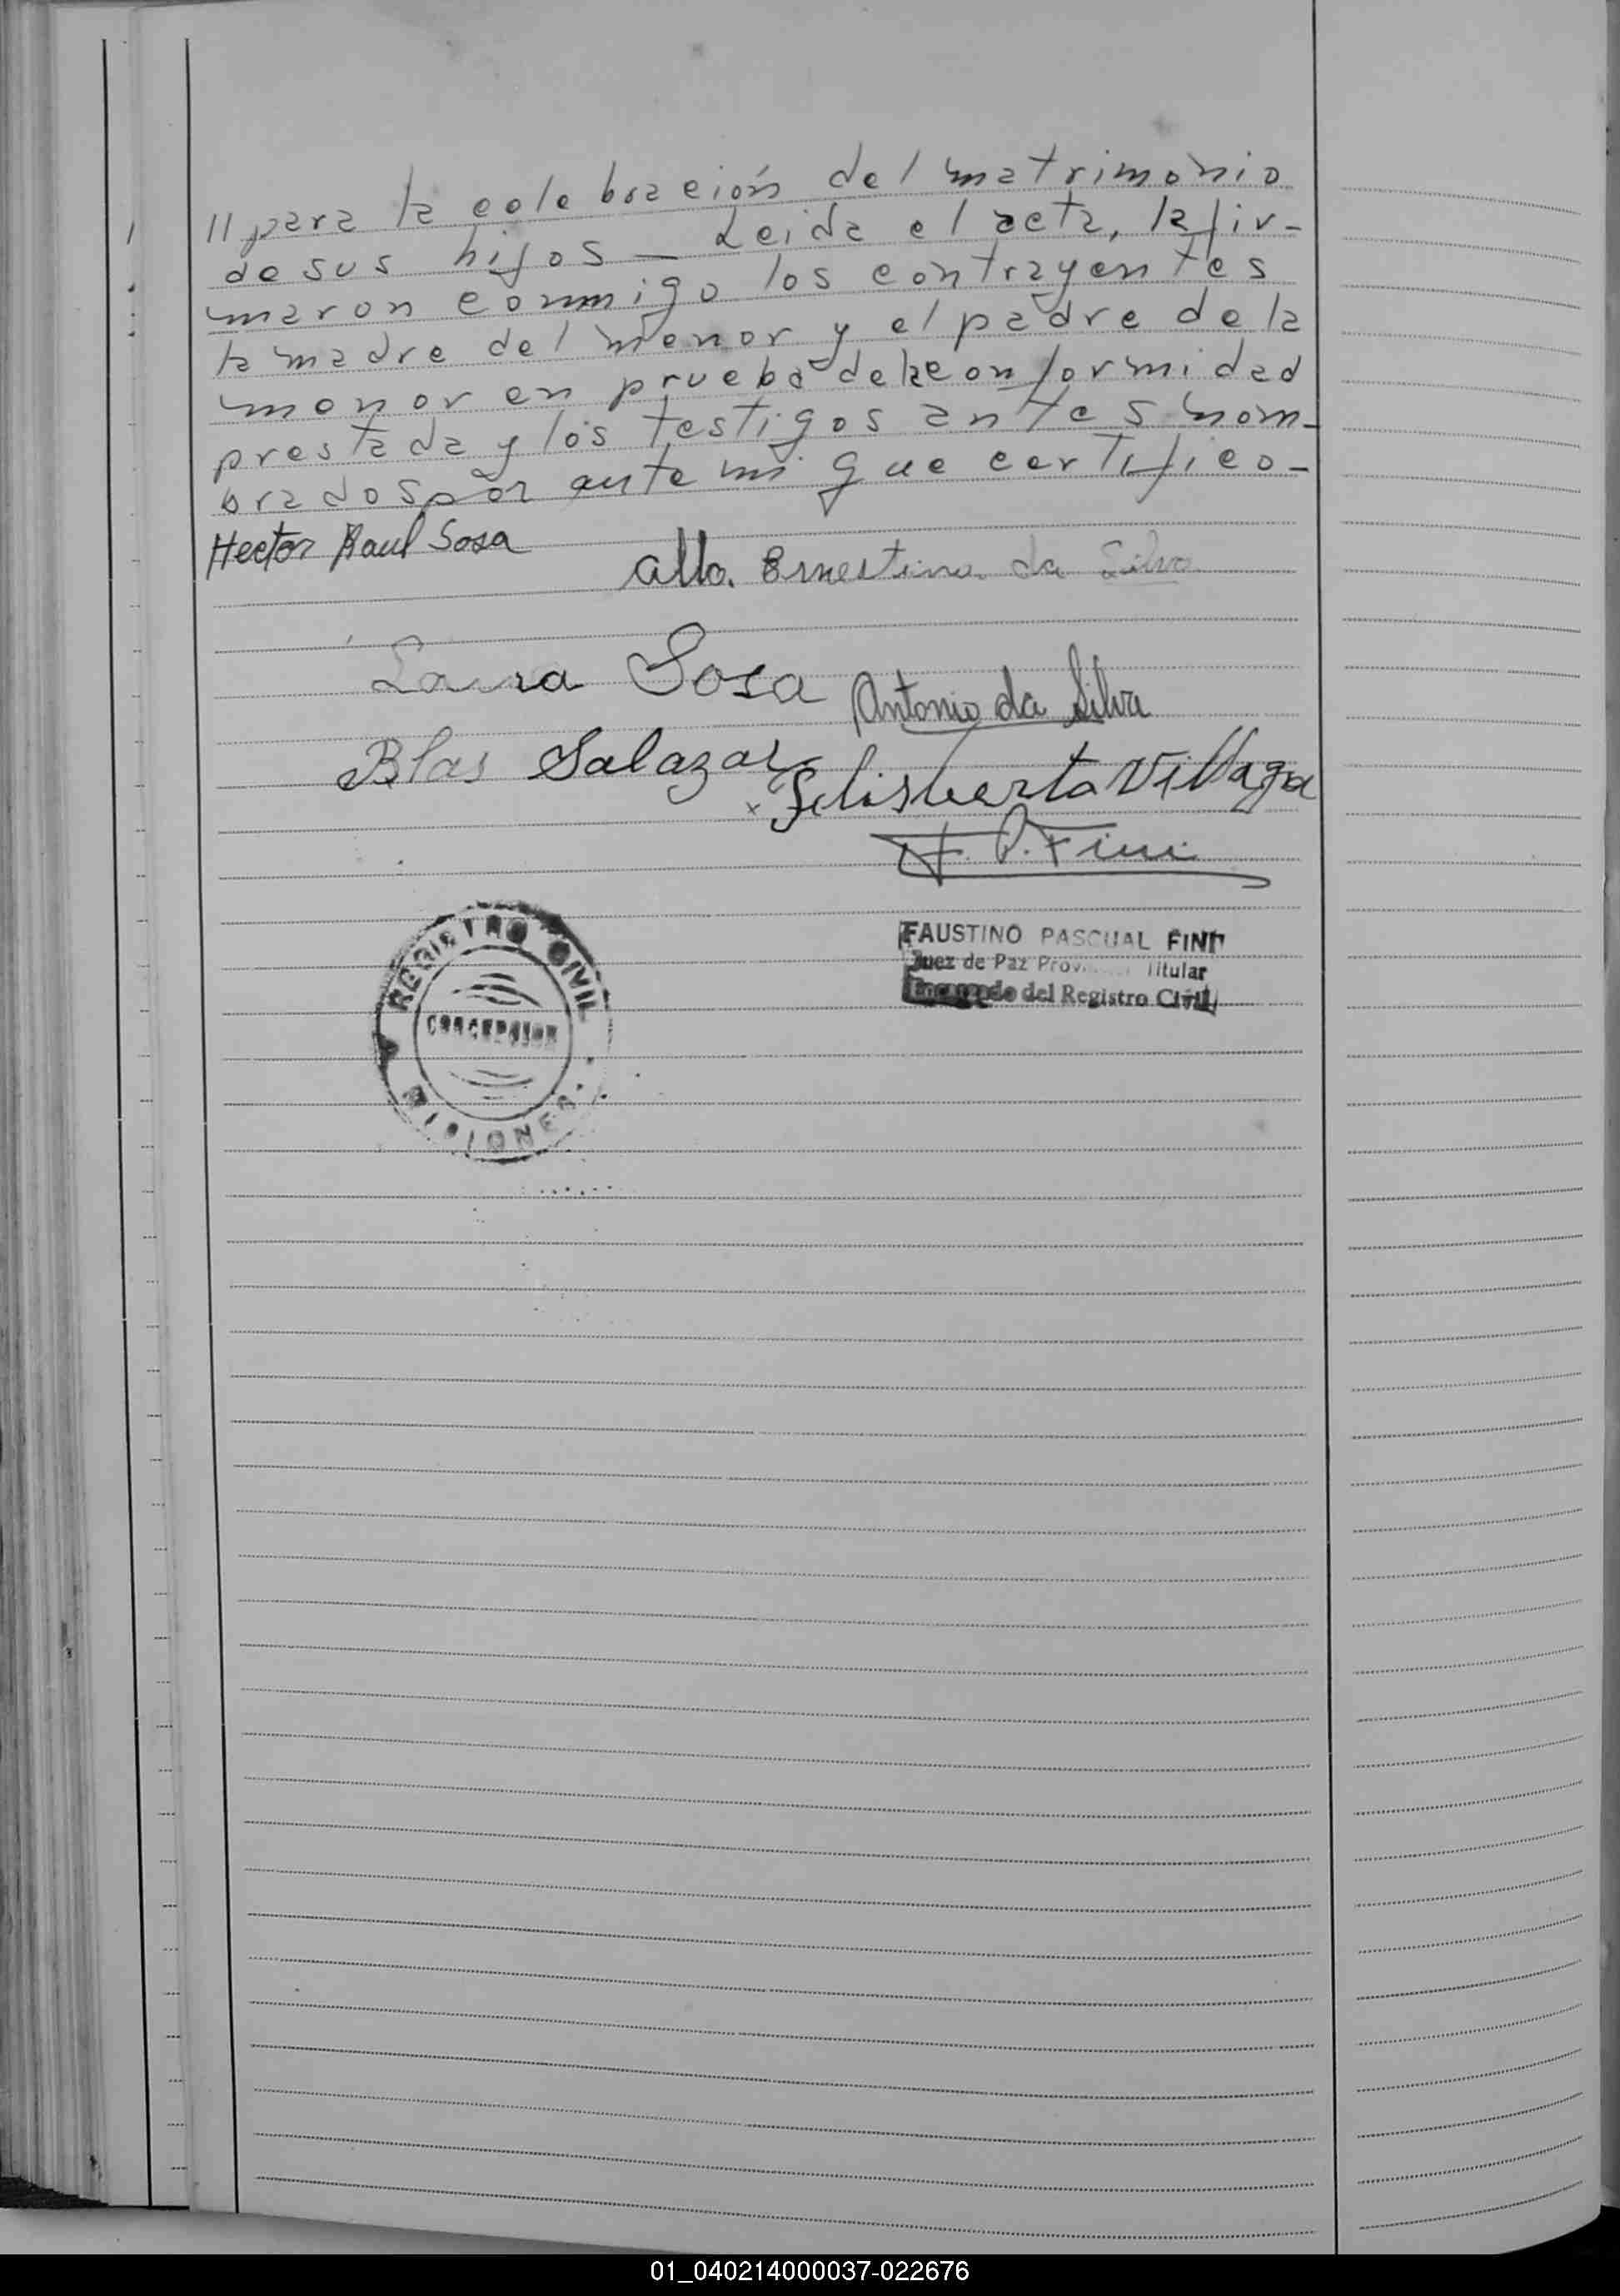 // para la celebración del matrimonio
de sus hijos — Leida el acta, la fir-
maron conmigo los contrayentes
la madre del menor y el padre de la
menor en prueba de la conformidad
prestada y los testigos antes nom-
brados por ante mi que certifico-
Hector Raul Sosa
Alba Ernestina da Silva
Laura Sosa
Antonio da Silva
Blas Salazar
x Felisberta Villagra
F. P. Fini
REGISTRO CIVIL
CONCEPCION
MISIONES
FAUSTINO PASCUAL FINI
Juez de Paz Titular
Encargado del Registro Civil
01_040214000037-022676